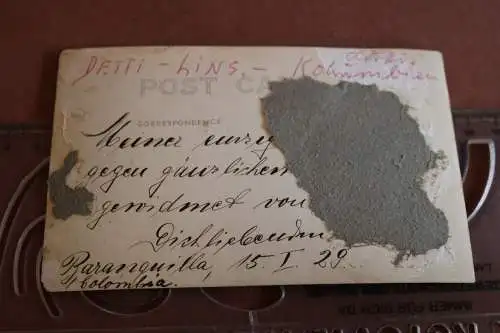 DETTI - LINS. - Kolumbien
POST CA
CORRESPONDENCE
Meiner einzig
gegen gänzlichen
gewidmet von
Dichliebenden
Baranquilla, 15. I. 29.
Colombia.